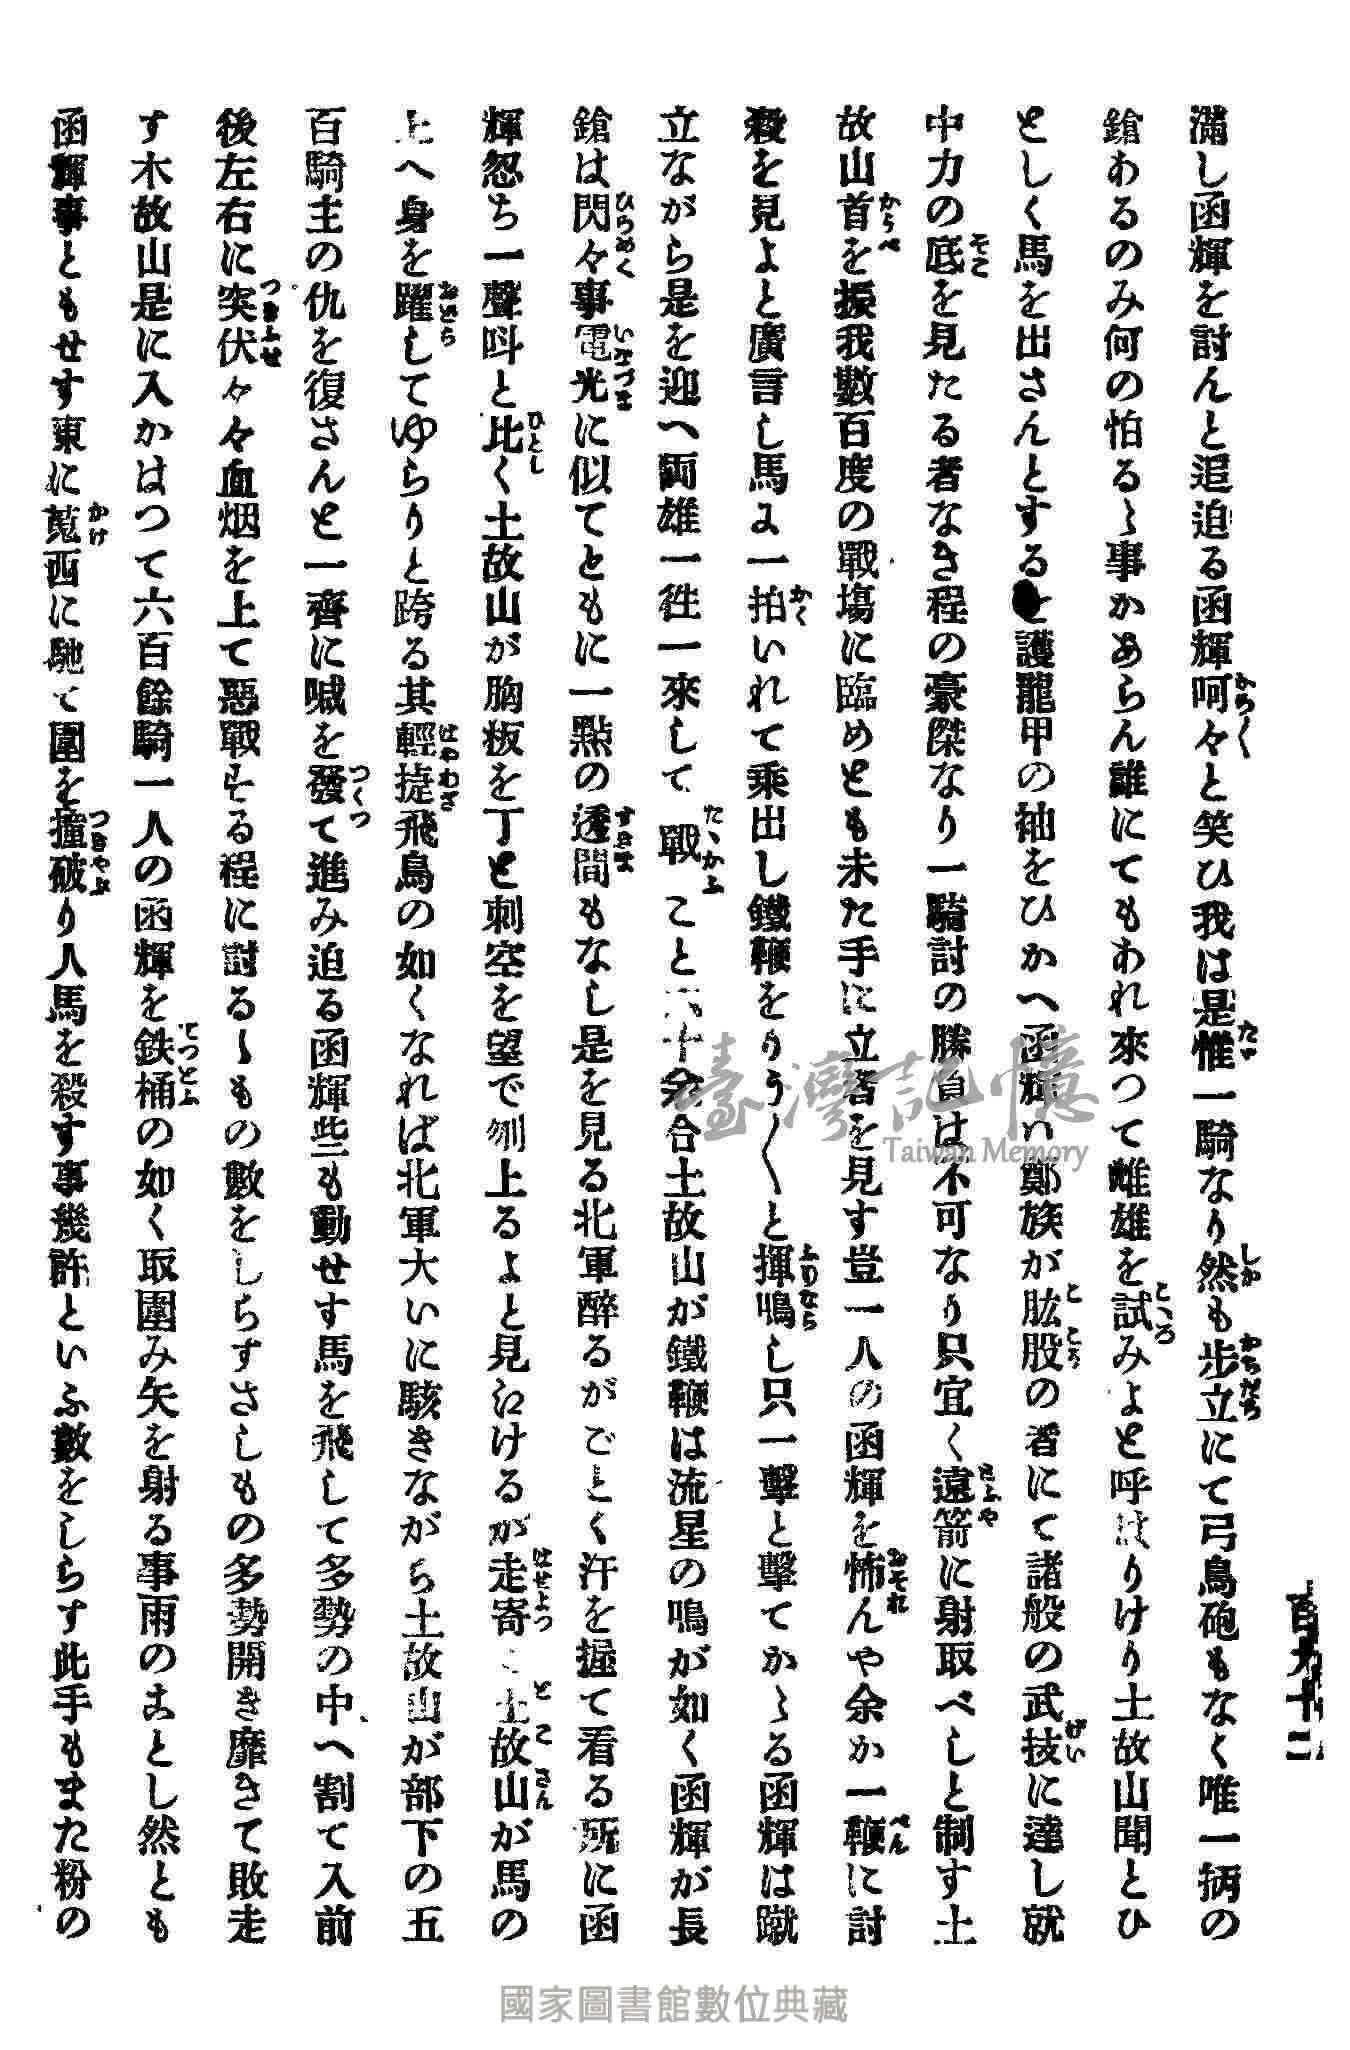 百九十二
滿し函輝を討んと追迫る函輝呵々と笑ひ我は是惟一騎なり然も歩立にて弓鳥砲もなく唯一柄の
鎗あるのみ何の怕るゝ事かあらん誰にてもあれ來つて雌雄を試みよと呼はりけり土故山聞とひ
としく馬を出さんとするを護龍甲の袖をひかへ函輝ハ鄭族が肱股の者にて諸般の武技に達し就
中力の底を見たる者なき程の豪傑なり一騎討の勝負は不可なり只宜く遠箭に射取べしと制す土
故山首を振我數百度の戰塲に臨めども未た手に立者を見す豈一人の函輝を怖んや余か一鞭に討
殺を見よと廣言し馬に一拍いれて乘出し鐵鞭をりう〳〵と揮鳴し只一擊と擊てかゝる函輝は蹴
立ながら是を迎へ両雄一徃一來して戰こと十余合土故山が鐵鞭は流星の鳴が如く函輝が長
鎗は閃々事電光に似てともに一點の透間もなし是を見る北軍醉るがごとく汗を握て看る所に函
輝忽ち一聲呌と比く土故山が胸板を丁と刺空を望で刎上るよと見江けるが走寄土故山が馬の
上へ身を躍してゆらりと跨る其輕捷飛鳥の如くなれば北軍大いに駭きながら土故山が部下の五
百騎主の仇を復さんと一齊に喊を發て進み迫る函輝些も動せす馬を飛して多勢の中へ割て入前
後左右に突伏々々血烟を上て惡戰する程に討るゝもの數をしらすさしもの多勢開き靡きて敗走
す木故山是に入かはつて六百餘騎一人の函輝を鉄桶の如く取圍み矢を射る事雨のことし然とも
函輝事ともせす東に蒐西に馳て圍を撞破り人馬を殺す事幾許といふ數をしらす此手もまた粉の
國家圖書館數位典藏
臺灣記憶
Taiwan Memory